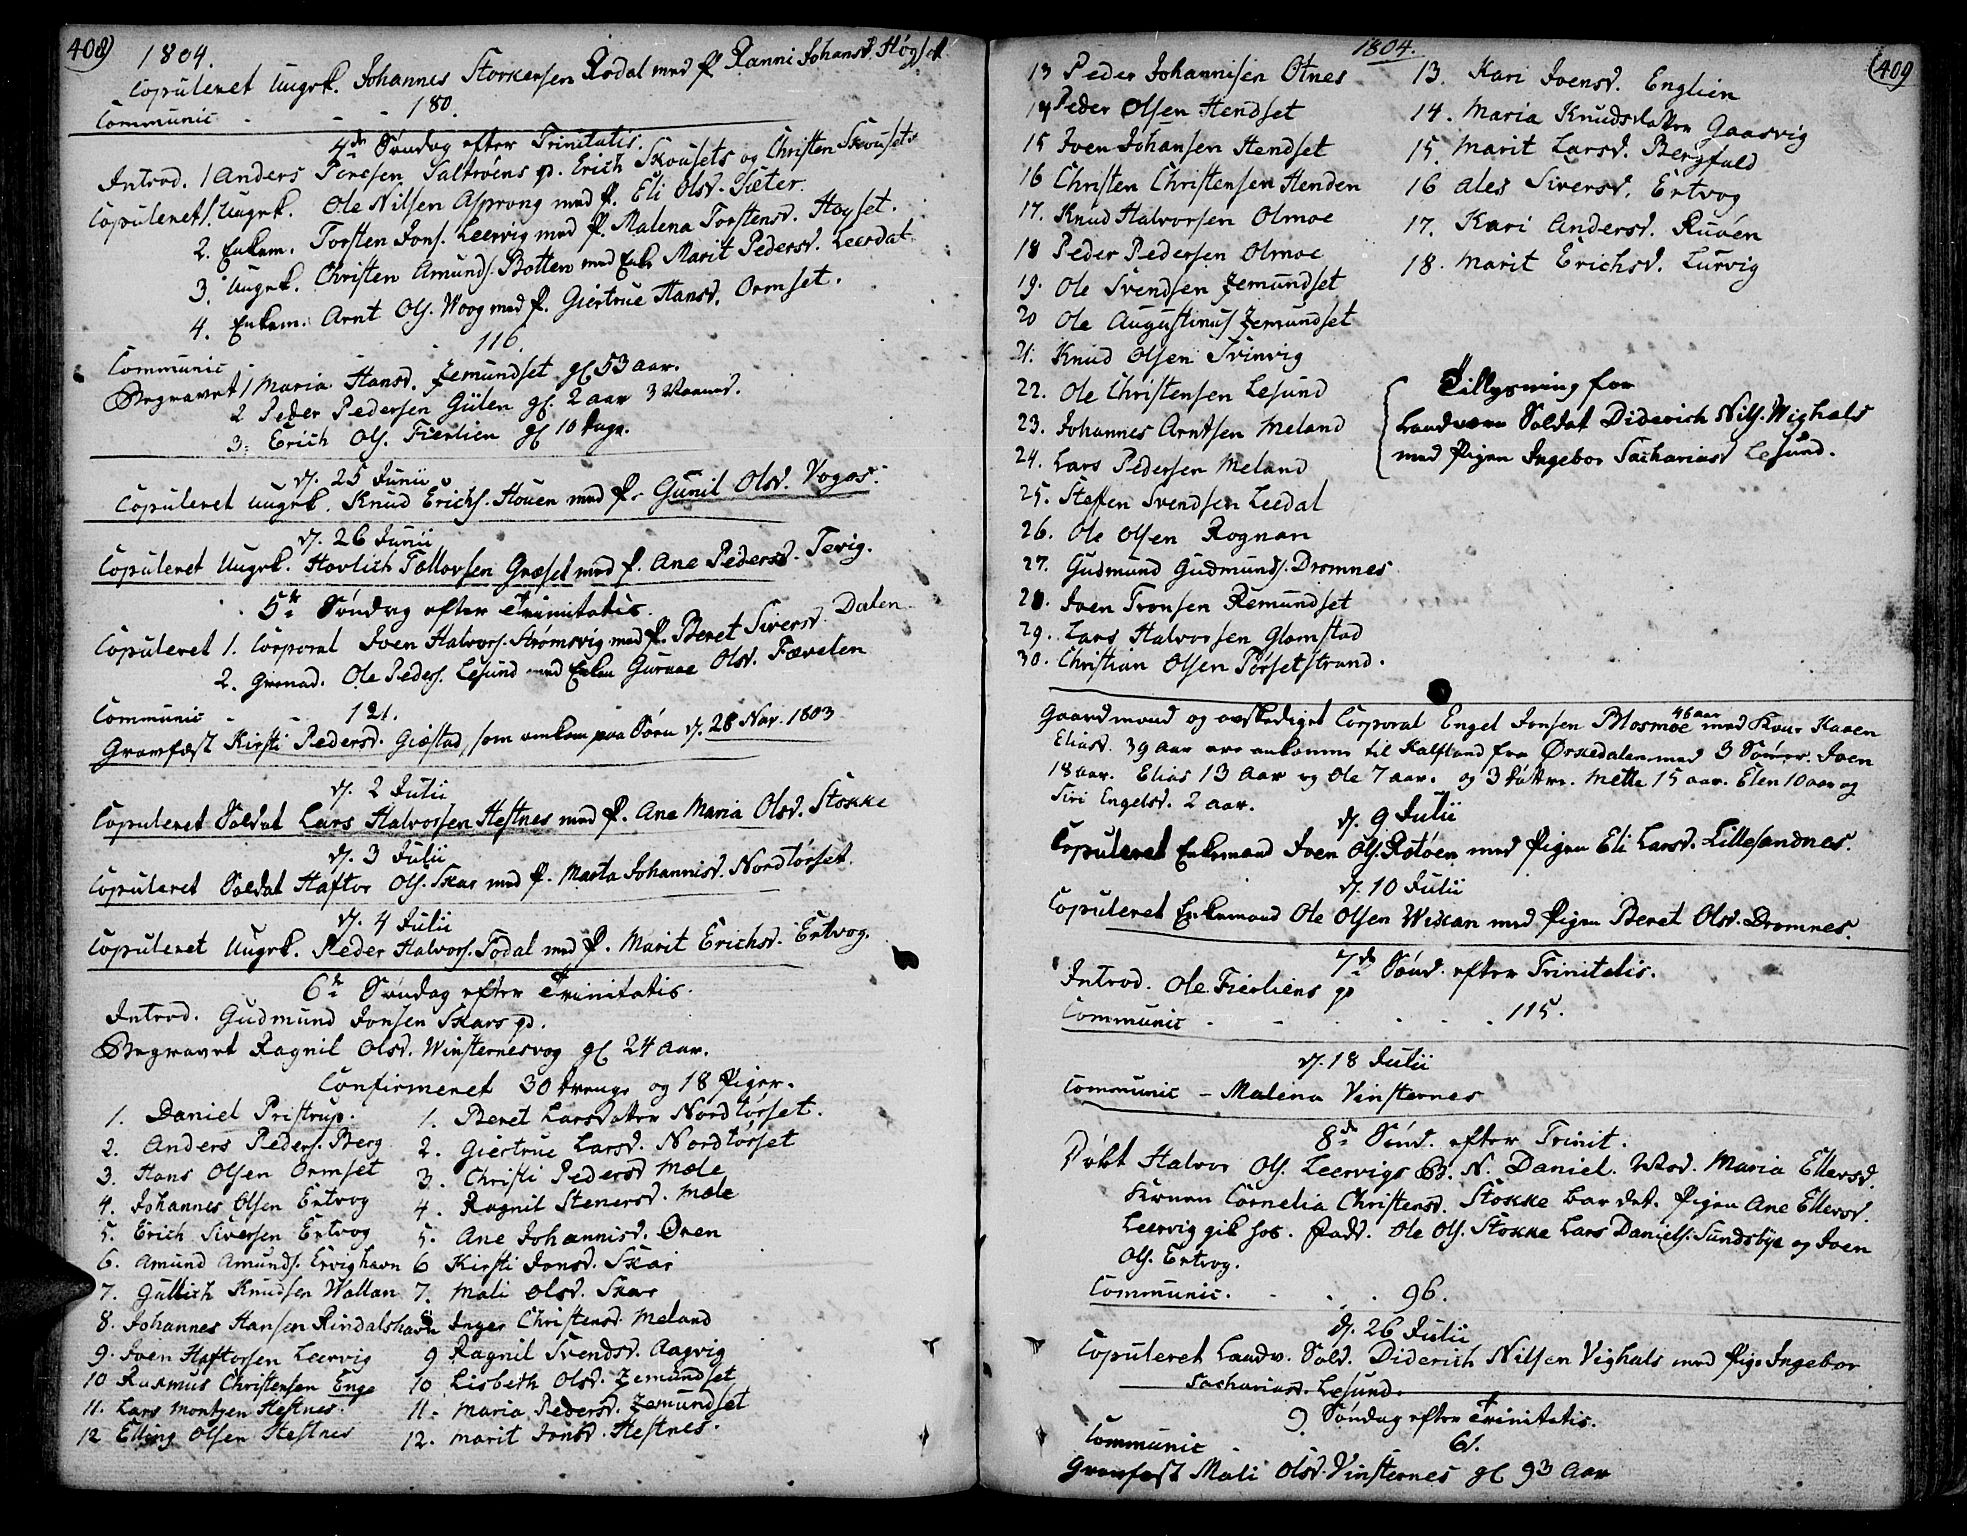 408
1804.
Copuleret Ungk. Johannes Storkersen Rodal med P. Ranni Johansd. Høgset
Communic - - - 180.
4de Søndag efter Trinitatis.
Introd. 1 Anders Toresen Saltrøens qv. Erich Skousets og Christen Skousets
Copuleret 1. Ungk. Ole Nilsen Asprong med P. Eli Olsd. Sæter.
2. Enkem. Torsten Jons. Leervig med P. Malena Torstensd. Hoyset.
3. Ungk. Christen Amunds. Botten med Enke Marit Pedersd. Leerdal
4. Enkem. Arnt Ols. Woog med P. Giertrue Hansd. Ormset.
Communic - 116.
Begravet 1 Maria Hansd. Jemundset gl 53 aar.
2 Peder Pedersen Gülen gl. 2 aar 3 Maaned.
3. Erich Ols. Fierlien gl 10 dage.
d. 25 Junii
Copuleret Ungk. Knud Erichs. Houen med P. Gunil Olsd. Vogas.
d. 26 Junii
Copuleret Ungk. Hovlich Tollovsen Græset med P. Ane Pedersd. Tevig.
5te Søndag efter Trinitatis.
Copuleret 1. Corporal Joen Halvors. Stromsvig med P. Beret Siversd. Dalen
2. Grenad. Ole Peders. Lesund med Enken Guroe Olsd. Fævelen
Communic - - 121.
Gravfæst Kirsti Pedersd. Giøstad, som omkom paa Søen d. 28 Nov. 1803
d. 2 Julii
Copuleret Soldat Lars Halvorsen Hestnes med P. Ane Maria Olsd. Stokke
d. 3 Julii
Copuleret Soldat Haftor Ols. Skar med P. Marta Johannisd. Nordtørset.
d. 4 Julii
Copuleret Ungk. Peder Halvors. Todal med P. Marit Erichsd. Ertvog.
6te Søndag efter Trinitatis.
Introd. Gudmund Jonsen Skars qv.
Begravet Ragnil Olsd. Winsternesvog gl 24 aar.
Confirmeret 30 drenge og 18 Piger.
1. Daniel Pristrup.
2. Anders Peders. Berg
3. Hans Olsen Ormset
4. Johannes Olsen Ertvog
5. Erich Siversen Ertvog
6. Amund Amunds. Ervighavn
7. Gullich Knudsen Wollan
8. Johannes Hansen Rindalshavn
9. Joen Haftorsen Leervig
10 Rasmus Christensen Enge
11. Lars Montzen Hestnes.
12 Elling Olsen Hestnes
1. Beret Larsdatter Nordtørset.
2. Giertrue Larsd. Nordtørset
3. Christi Pedersd Mæle
4. Ragnil Stenersd. Mæle
5. Ane Johannisd. Øren
6 Kirsti Jonsd. Skar
7. Mali Olsd. Skar
8 Inger Christensd. Meland
9 Ragnil Svendsd. Aagvig
10 Lisbeth Olsd. Jemundset
11. Maria Pedersd. Jemundset
12. Marit Jonsd. Hestnes.
1804.
409
13 Peder Johannisen Otnes
14 Peder Olsen Hendset
15 Joen Johansen Hendset
16 Christen Christensen Henden
17. Knud Halvorsen Olmoe
18 Peder Pedersen Olmoe
19. Ole Svendsen Jemundset
20 Ole Augustinus Jemundset
21. Knud Olsen Svinvig
22. Ole Christensen Lesund
23. Johannes Arntsen Meland
24. Lars Pedersen Meland
25. Steffen Svendsen Leedal
26. Ole Olsen Rognan
27. Gudmund Gudmunds. Dromnes
28. Joen Tronsen Remundset
29. Lars Halvorsen Glamstad
30. Christian Olsen Torsetstrand.
13. Kari Joensd. Englien
14. Maria Knudsdatter Gaasvig
15. Marit Larsd. Bergfald
16 Ales Siversd. Ertvog
17. Kari Andersd. Ruöen
18. Marit Erichsd. Lurvig
Tillysning for
Landværn Soldat Diderich Nils. Wighals
med Pigen Ingebor Sachariasd Lesund.
Gaardmand og avskediget Corporal Engel Jonsen Blosmoe 46 aar med Kone Karen
Eliasd. 39 Aar ere ankomne til Kalfland fra Ørkedalen med 3 Sønner. Joen
18 aar. Elias 13 Aar og Ole 7 aar. og 3 døttre. Mette 15 aar. Elen 10 aar og
Siri Engelsd. 2 aar.
d. 9 Julii
Copuleret Enkemand Joen Ols. Rotøen med Pigen Eli Larsd. Lillesandnes.
d. 10 Julii
Copuleret Enkemand Ole Olsen Wikan med Pigen Beret Olsd. Dromnes.
7de Sønd. efter Trinitatis.
Introd. Ole Fierliens qv
Communic - - - - 115.
d. 18 Julii
Communic - Malena Vinsternes
8de Sønd. efter Trinit.
Døbt Halvor Ols. Leervigs B. N. Daniel. Mod. Maria Ellersd.
Konen Cornelia Christensd. Stokke bar det. Pigen Ane Ellersd.
Leervig gik hos. Fadd. Ole Ols. Stokke Lars Daniels. Sundsbye og Joen
Ols. Ertvog.
Communic. - - - 96.
d. 26 Julii
Copuleret Landv. Sold. Diderich Nilsen Vighals med Pige Ingebor
Sachariasd. Lesund.
9. Søndag efter Trinitatis.
Communic - 61.
Gravfæst Mali Olsd. Vinsternes gl 93 Aar